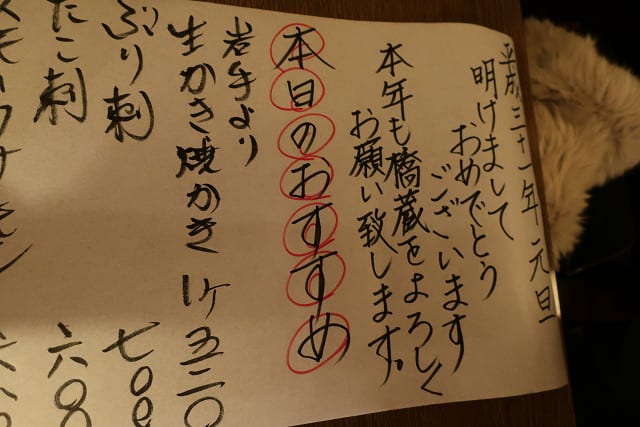 平成三十一年 元旦
明けまして
おめでとう
ございます
本年も橋蔵をよろしく
お願い致します。
本日のおすすめ
岩手より
生かき焼かき 1ヶ 五二〇
ぶり刺 七〇〇
たこ刺 六〇